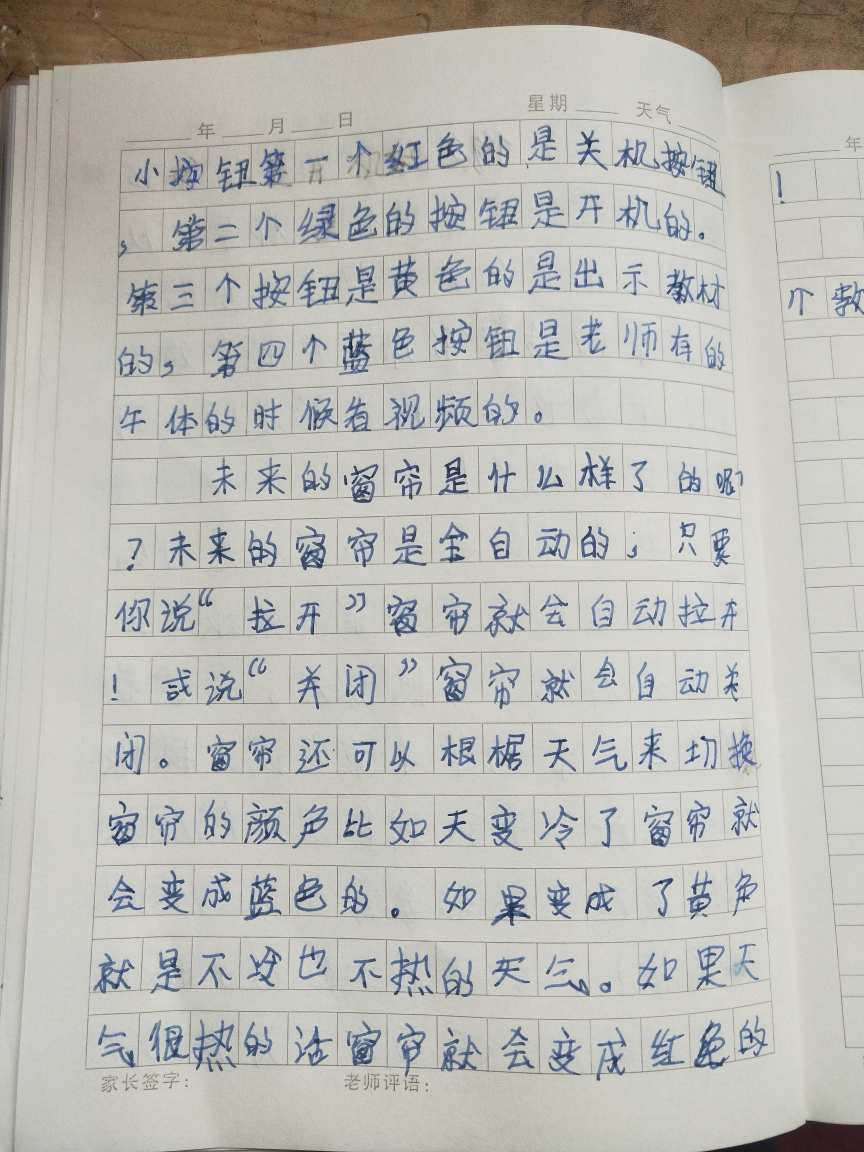 年 月 日 星期 天气
小按钮第一个红色的是关机按钮
，第二个绿色的按钮是开机的。
第三个按钮是黄色的是出示教材
的，第四个蓝色按钮是老师存的
午体的时候看视频的。
未来的窗帘是什么样了的呢
？未来的窗帘是全自动的，只要
你说“拉开”窗帘就会自动拉开
！或说“关闭”窗帘就会自动关
闭。窗帘还可以根据天气来切换
窗帘的颜色比如天变冷了窗帘就
会变成蓝色的。如果变成了黄色
就是不冷也不热的天气。如果天
气很热的话窗帘就会变成红色的
家长签字： 老师评语：
年
！
个教